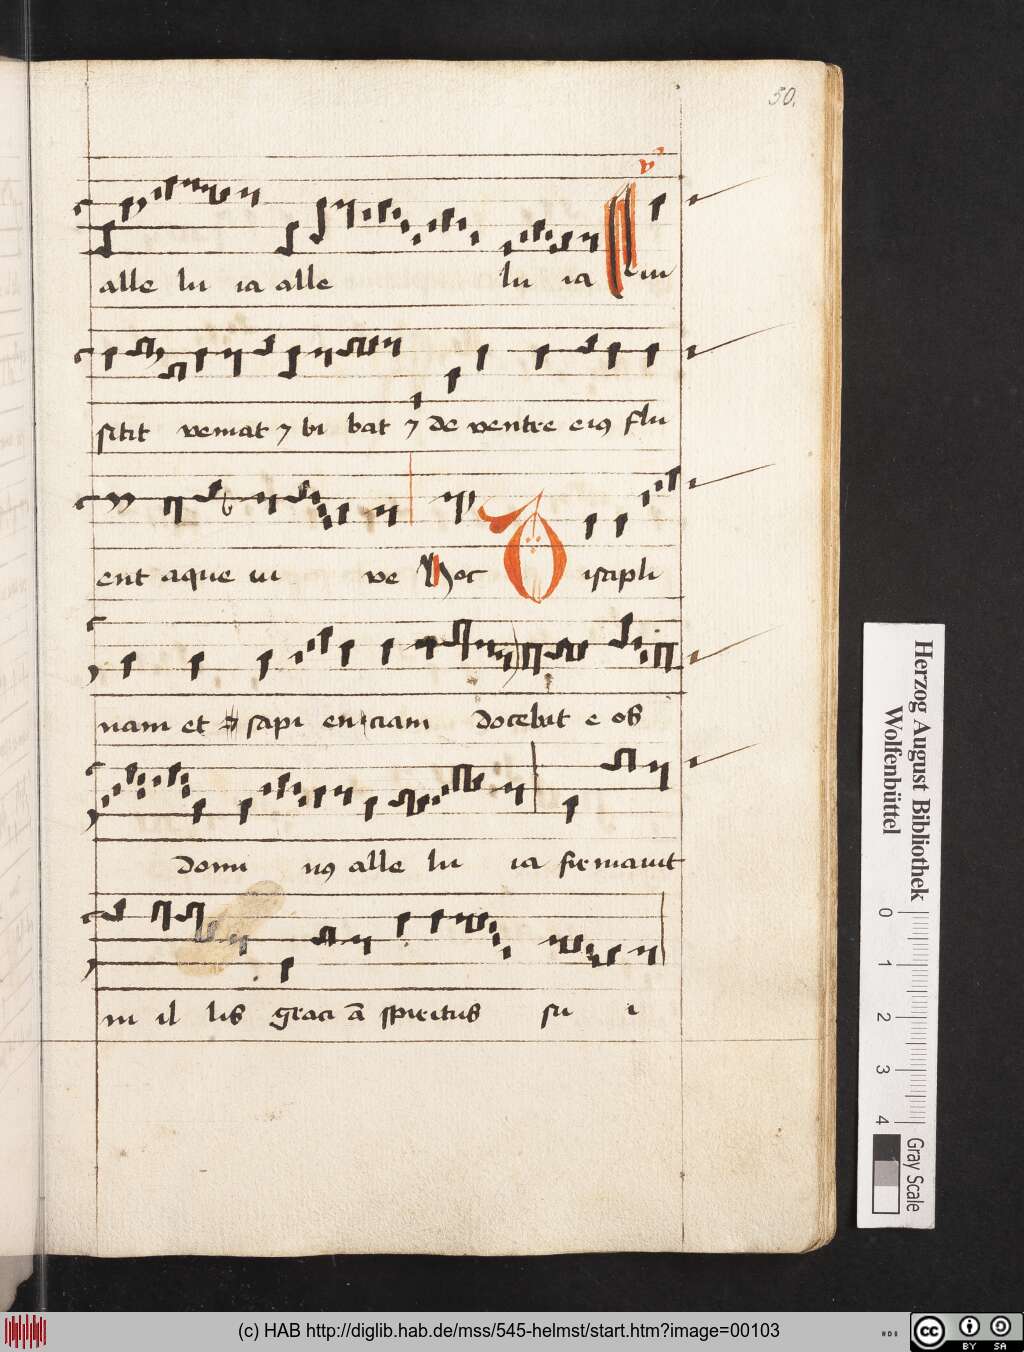 50.
alle lu ia alle lu ia Qui
sitit veniat ⁊ bi bat ⁊ de ventre eiꝰ flu
ent aque ui ve Hoc Discipli
nam et sapi en ciam docebit e os
domi nꝰ alle lu ia firmauit
in il lis graci ā spiritus su i
Herzog August Bibliothek
Wolfenbüttel
0 1 2 3 4
Gray Scale
(c) HAB http://diglib.hab.de/mss/545-helmst/start.htm?image=00103
cc BY SA